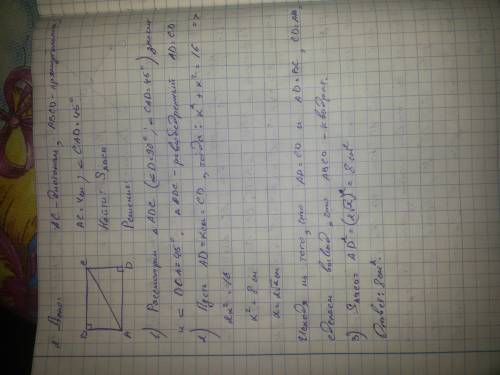 2. Дано: AC - диагональ, ABCD - прямоугольник,
AC = 4см, ∠CAD = 45°
Найти: Sавсд
Решение:
B C
A D
1) Рассмотрим ΔADC (∠D = 90°, ∠CAD = 45°)
и ∠DCA = 45°. ΔADC - равнобедренный AD = CD
2) Пусть AD = xсм = CD, тогда: x² + x² = 16 =>
2x² = 16
x² = 8 см
x = 2√2 см
Исходя из того, что AD = CD и AD = BC, CD = AB,
сделаем вывод, что ABCD - квадрат.
3) Sавсд = AD² = (2√2)² = 8 см²
Ответ: 8см².